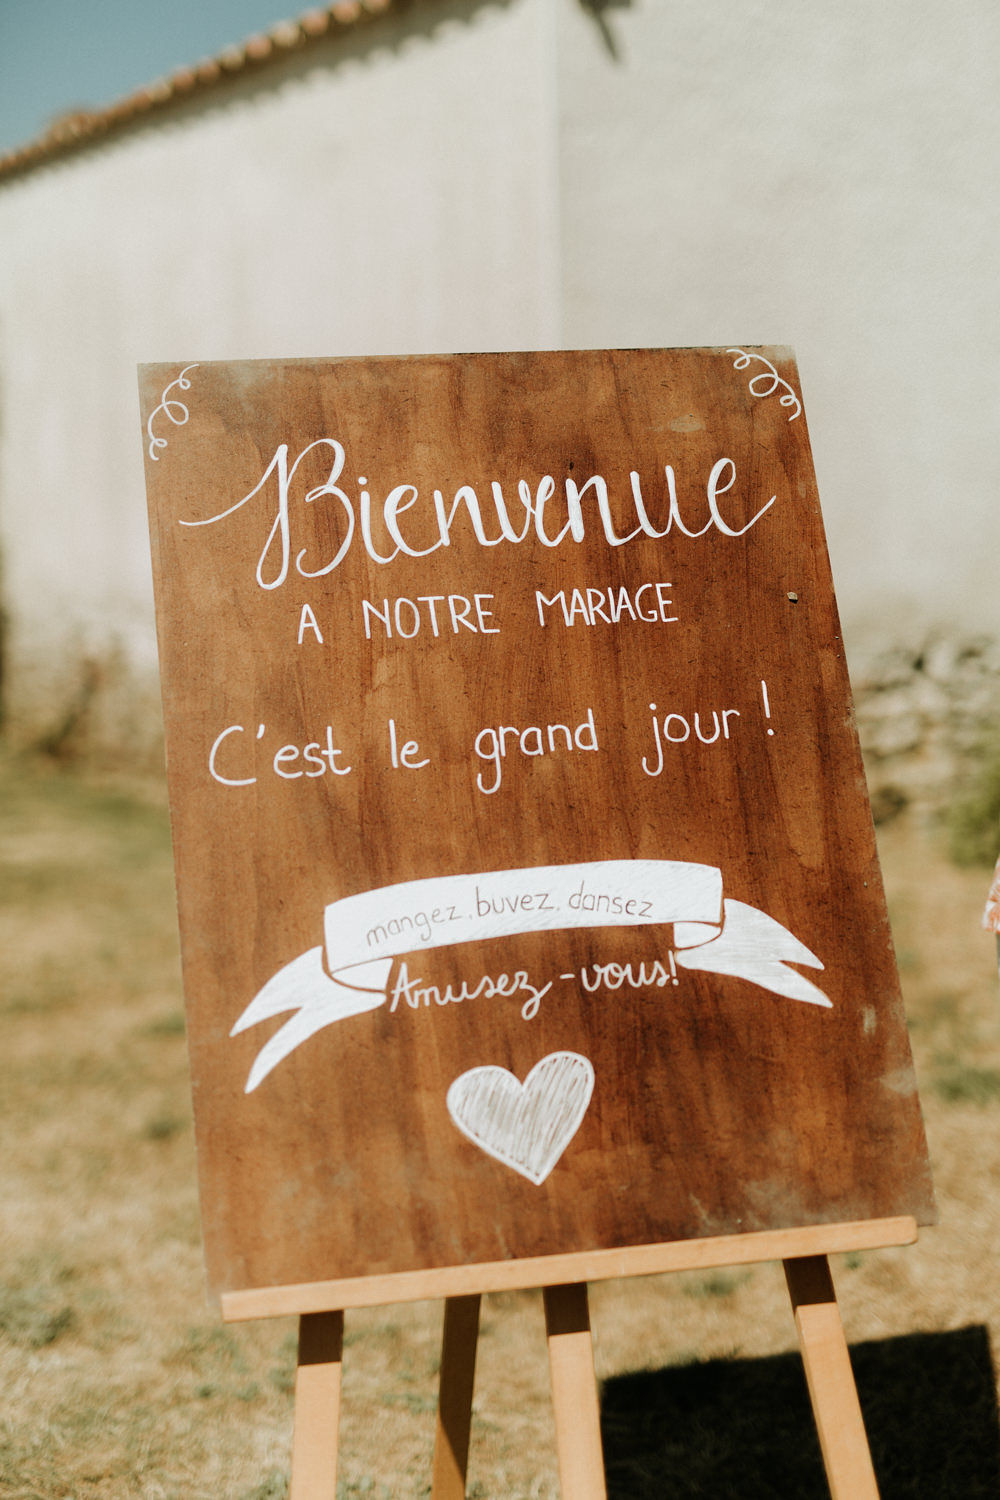 Bienvenue
A NOTRE MARIAGE
C'est le grand jour !
mangez, buvez, dansez
Amusez-vous!